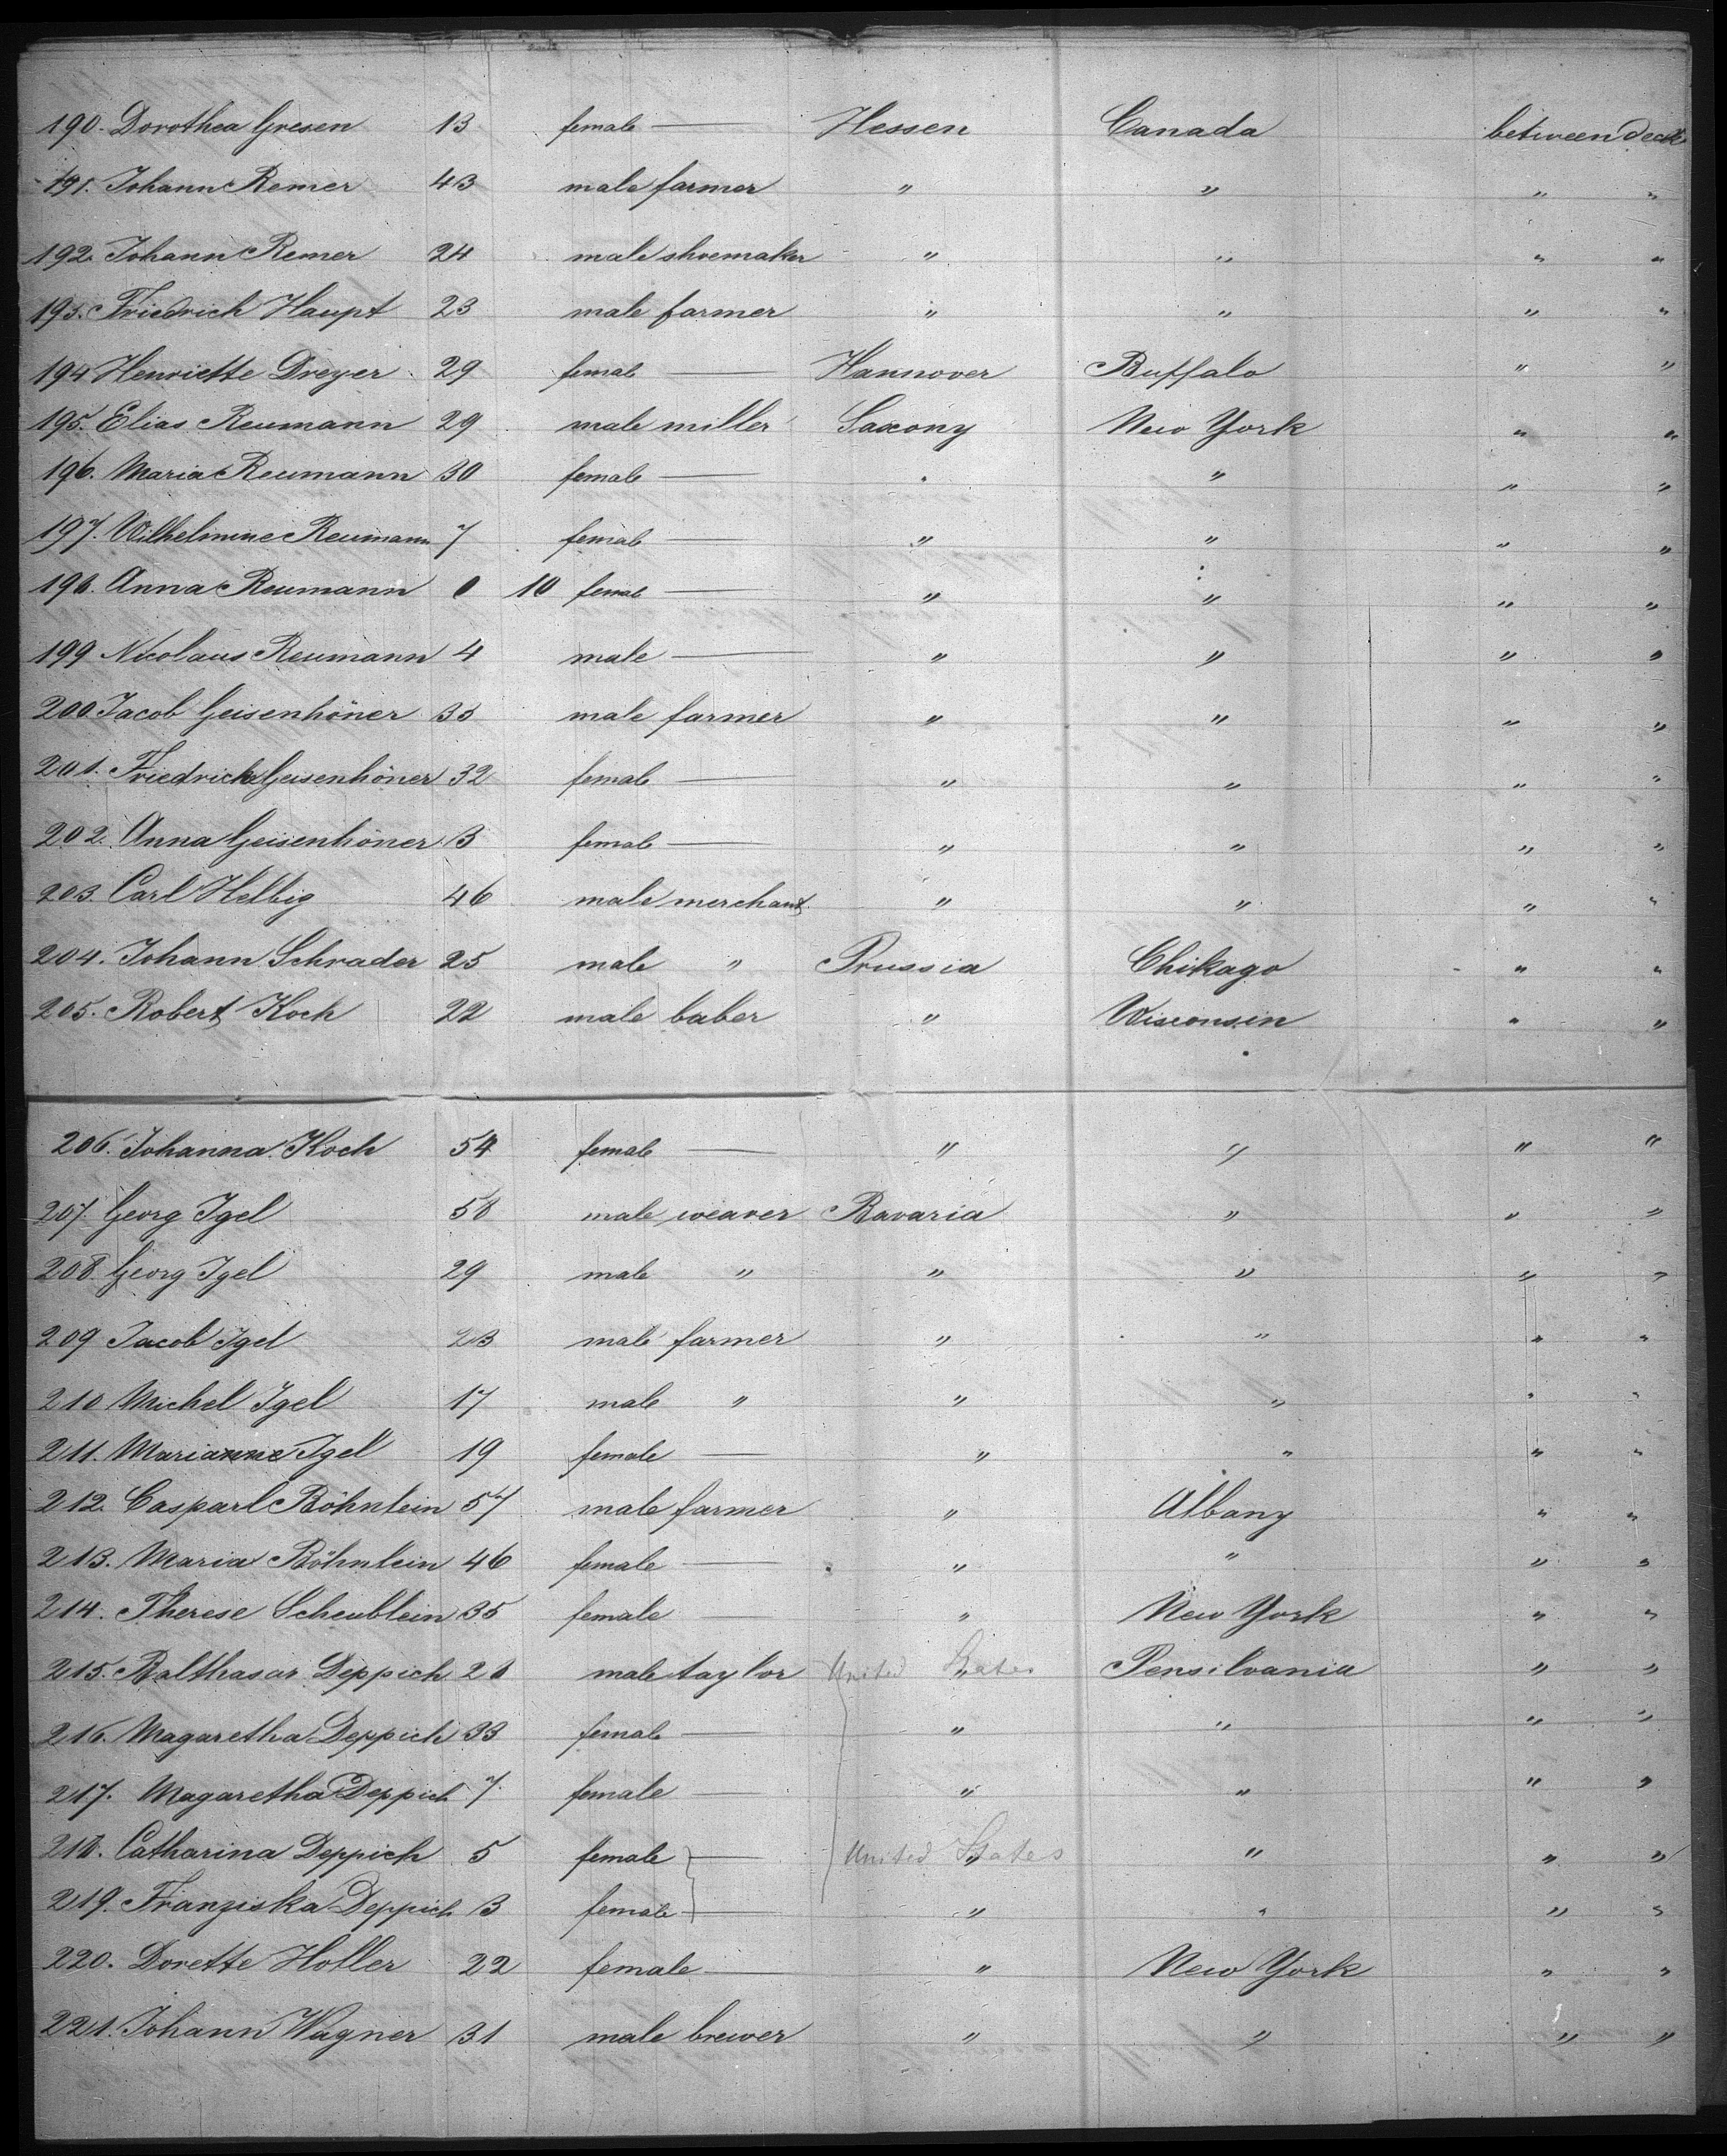 190. Dorothea Gresen 13 female — Hessen Canada between deck
191. Johann Remer 43 male farmer " " " "
192. Johann Remer 24 male shoemaker " " " "
193. Friedrich Haupt 23 male farmer " " " "
194 Henriette Dreyer 29 female — Hannover Buffalo " "
195. Elias Reumann 29 male miller Saxony New York " "
196. Maria Reumann 30 female — " " " "
197. Wilhelmine Reumann 7 female — " " " "
198. Anna Reumann 0 10 female — " " " "
199 Nicolaus Reumann 4 male — " " " "
200 Jacob Geisenhöner 33 male farmer " " " "
201. Friedricke Geisenhöner 32 female — " " " "
202. Anna Geisenhöner 3 female — " " " "
203. Carl Helbig 46 male merchant " " " "
204. Johann Schrader 25 male " Prussia Chikago " "
205. Robert Koch 22 male baber " Wisconsin " "
206. Johanna Koch 54 female — " " " "
207. Georg Igel 58 male weaver Bavaria " " "
208. Georg Igel 29 male " " " " "
209 Jacob Igel 23 male farmer " " " "
210 Michel Igel 17 male " " " " "
211. Marianne Igel 19 female — " " " "
212. Casparl Böhnlein 57 male farmer " Albany " "
213. Maria Böhnlein 46 female — " " " "
214. Therese Scheublein 35 female — " New York " "
215. Balthasar Deppich 28 male taylor United States " Pensilvania " "
216. Magaretha Deppich 33 female — " " " "
217. Magaretha Deppich 7 female — " " " "
218. Catharina Deppich 5 female — United States " " " "
219. Franziska Deppich 3 female — " " " "
220. Dorette Holler 22 female — " New York " "
221. Johann Wagner 31 male brewer " " " "